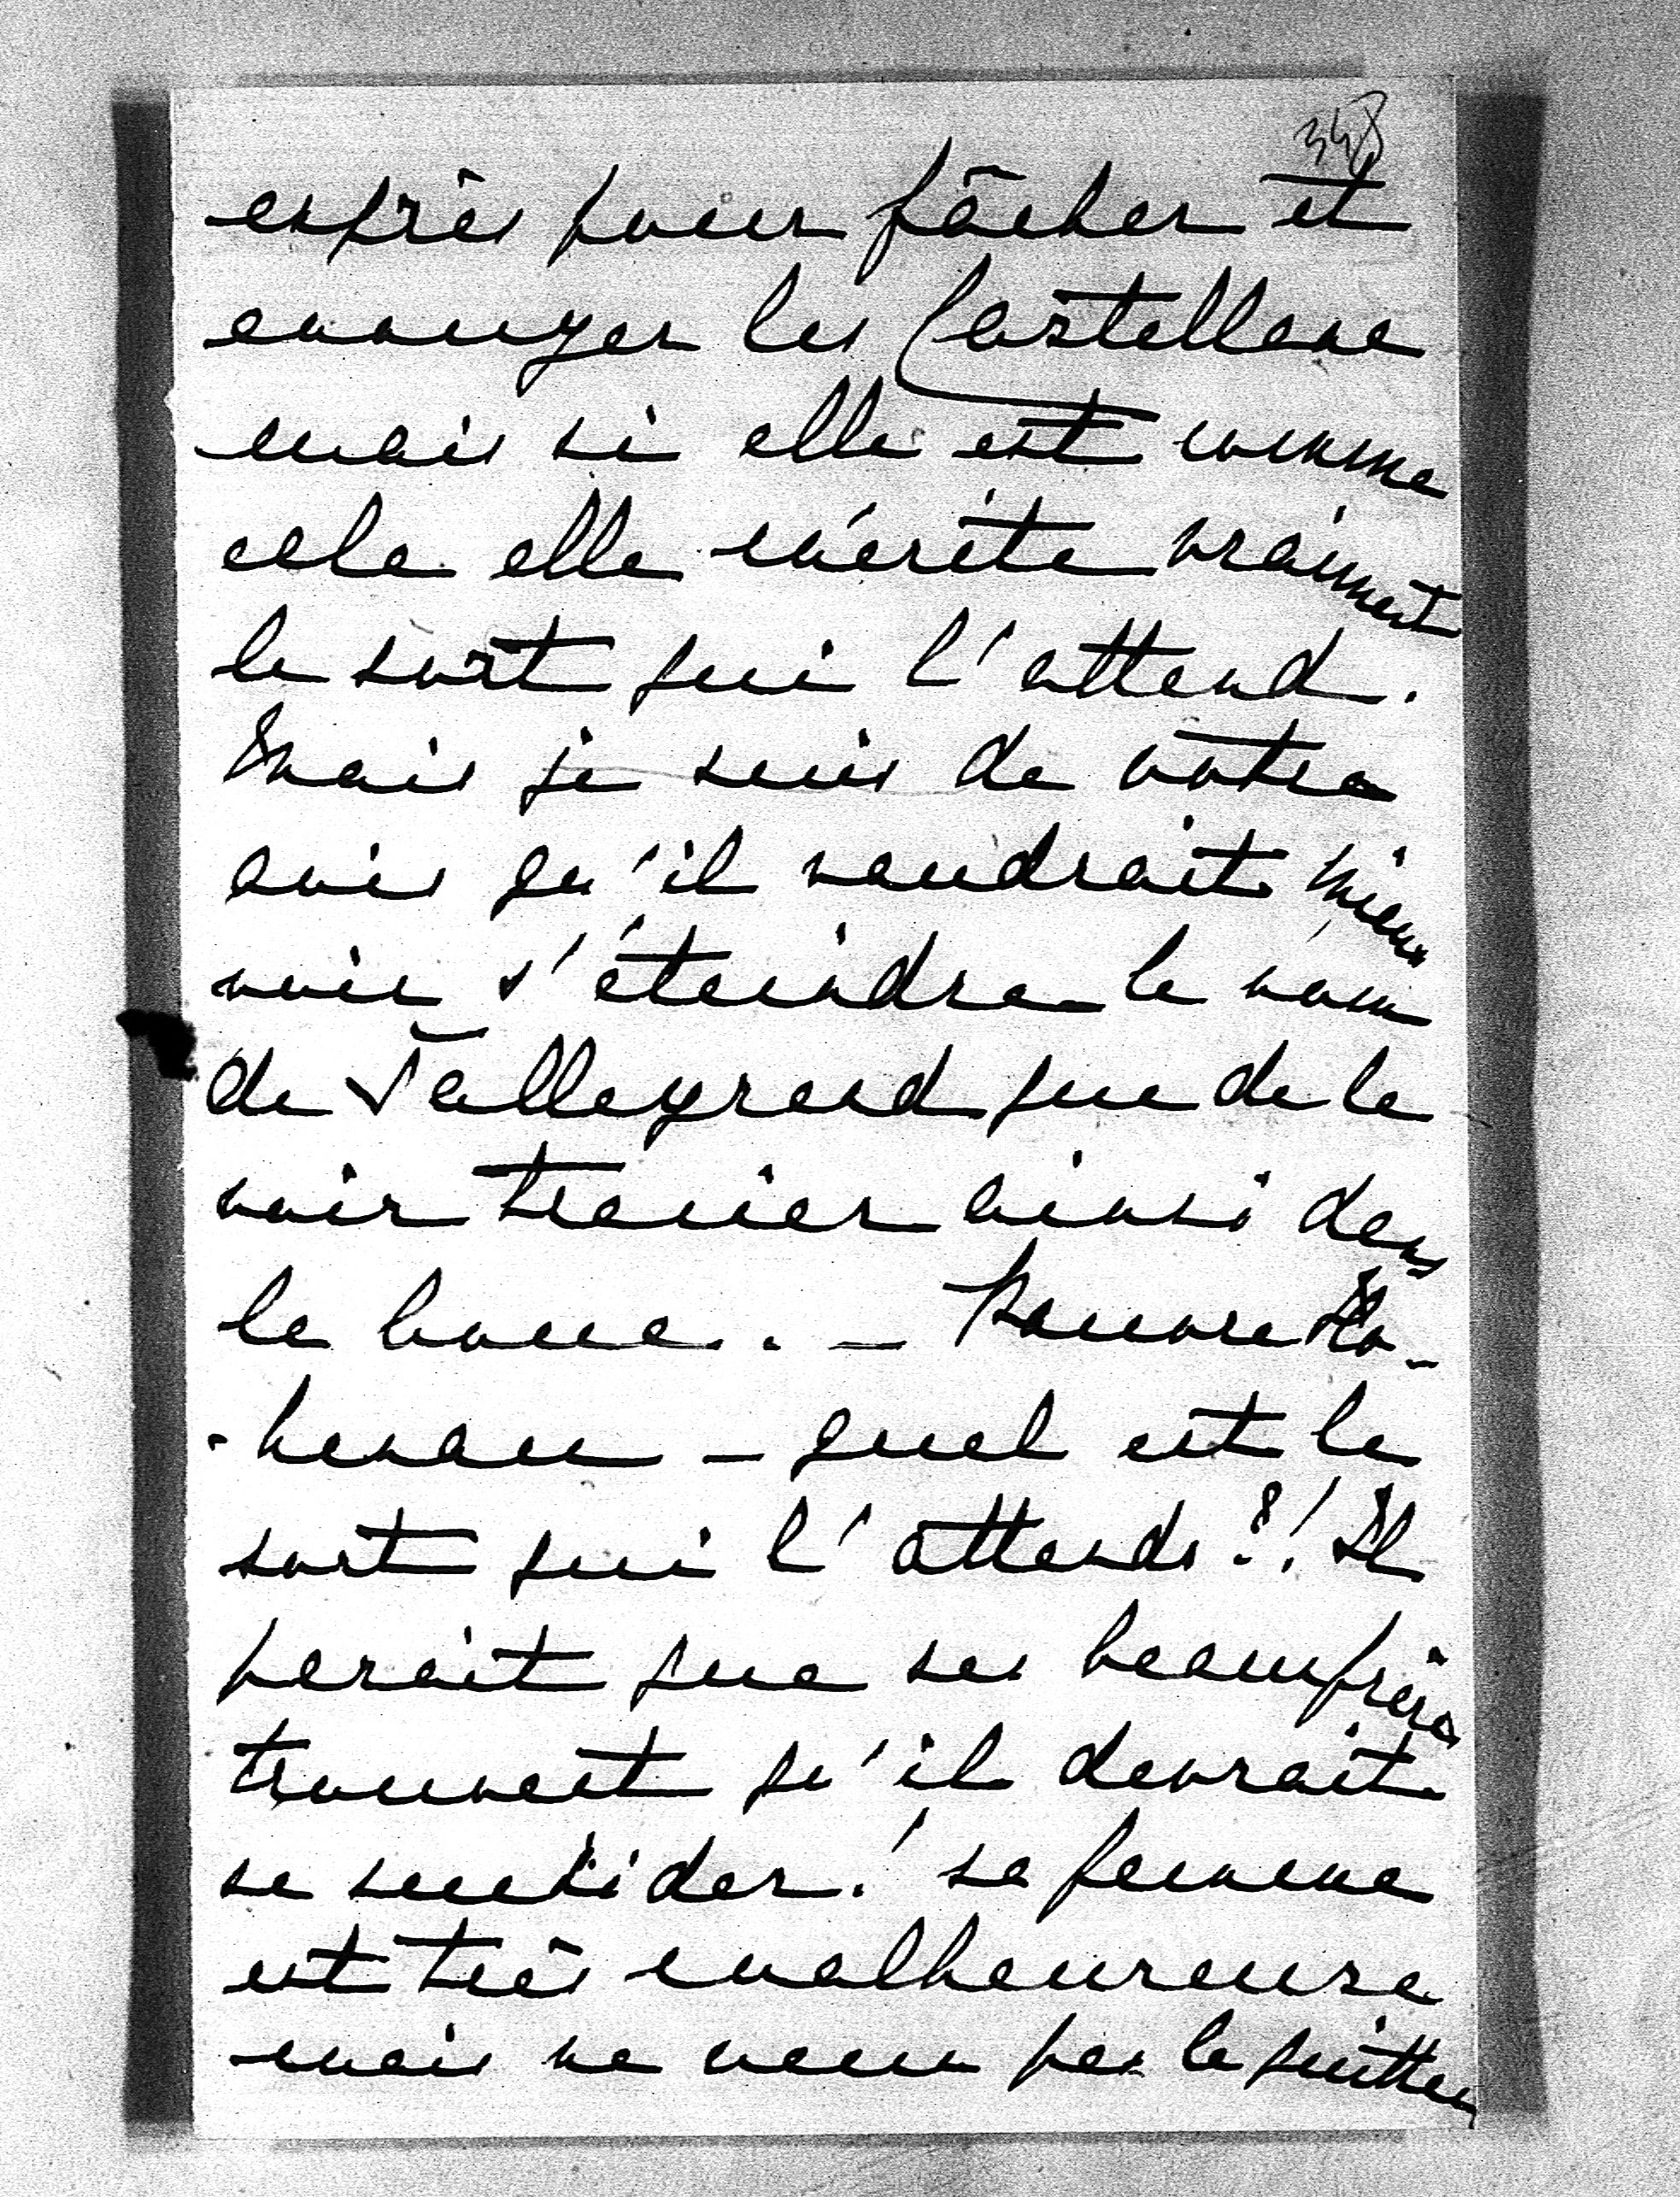 348
exprès pour fâcher et
ennuyer les Castellane
mais si elle est comme
cela elle mérite vraiment
le sort qui l'attend.
Mais je suis de votre
avis qu'il vaudrait mieux
voir s'éteindre le nom
de Talleyrand que de le
voir trainer ainsi dans
la boue. — Pauvre Ho-
-henau — quel est le
sort qui l'attends ?! Il
parait que ses beaufrères
trouvent qu'il devrait
se suicider ! sa femme
est très malheureuse
mais ne veux pas le quitter